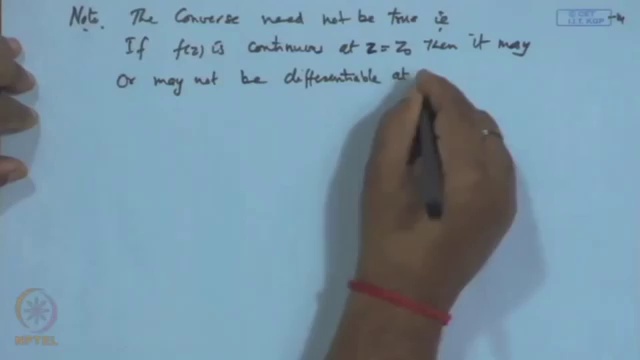 Note. The Converse need not be true ie
© CET
I.I.T. KGP
If f(z) is continuous at z = z₀ then it may
Or may not be differentiable at
NPTEL